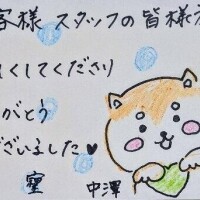 客様 スタッフの皆様
くしてくださり
がとう
ございました♥
中澤